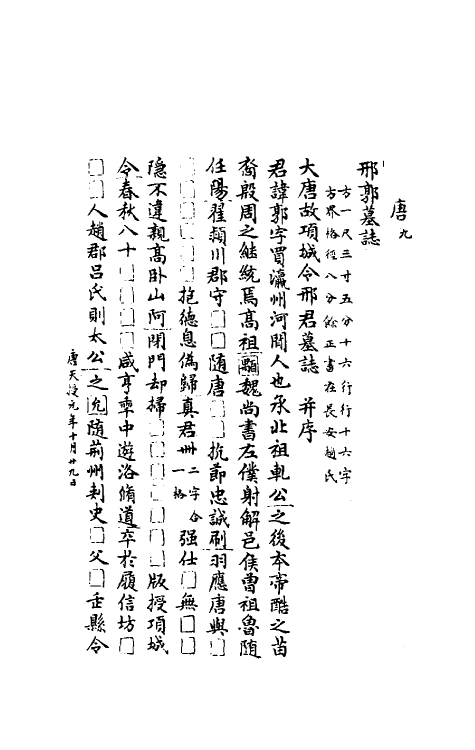 唐九
邢郭墓誌
方一尺三寸五分十六行行十六字
方界格徑八分餘正書在長安趙氏
大唐故項城令邢君墓誌 并序
君諱郭字買瀛州河間人也承北祖軋公之後本帝酷之苗
裔殷周之継統焉高祖顒魏尚書左僕射解邑侯曾祖魯随
任陽翟潁川郡守□□随唐□□抗節忠誠刷羽應唐與□
□□□□□抱德息偽歸真君卅二字合一格强仕□無□□
隐不違親高卧山阿閉門却掃□□□□□□版授項城
令春秋八十□□□□咸亨寧中遊洛脩道卒於履信坊□
□□人趙郡呂氏則太公之允随荊州刺史□父□壬縣令
唐天授元年十月廿九日